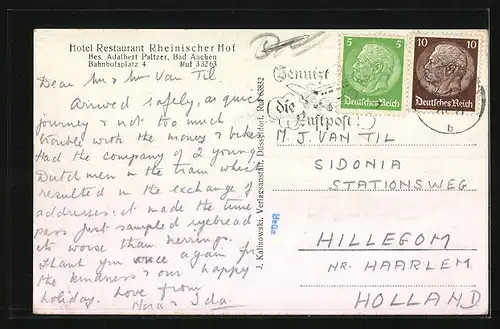 Hotel Restaurant Rheinischer Hof
Bes. Adalbert Paltzer, Bad Aachen
Bahnhofsplatz 4 Ruf 33263
Dear Mr & Mrs Van Til.
Arrived safely, a quick
journey & not too much
trouble with the money & bikes
Had the company of 2 young
Dutch men in the train which
resulted in the exchange of
addresses. it made the time
pass just sampled ryebread
its worse than herrings.
Thank you once again for
the kindness & our happy
holiday. Love from
Nora & Ida.
J. Kalinowski, Verlagsanstalt, Düsseldorf, Ruf 63832
Benutzt
die
Luftpost!
5 5
Deutsches Reich
10 10
Deutsches Reich
b
M. J. VAN TIL
SIDONIA
STATIONSWEG
HILLEGOM
NR. HAARLEM
HOLLAND